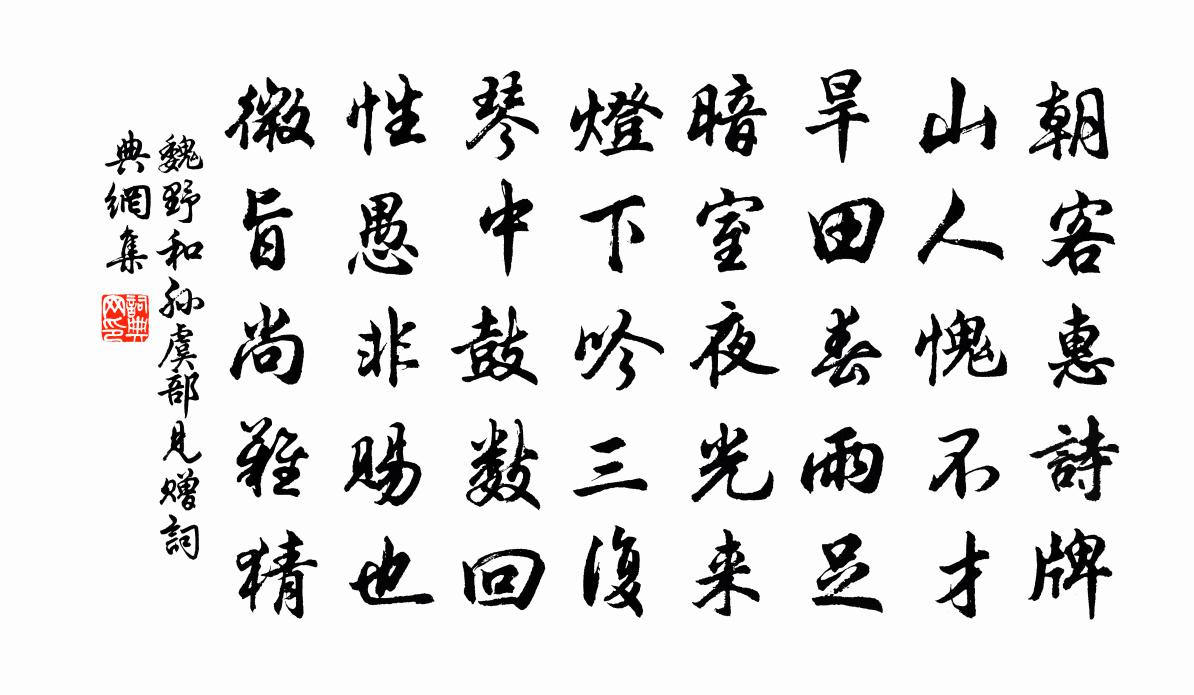 朝客惠詩牌
山人愧不才
旱田春雨足
暗室夜光来
燈下吟三復
琴中鼓數回
性愚非賜也
微旨尚難猜
魏野和孙虞部見贈詞
典網集
詞典网印